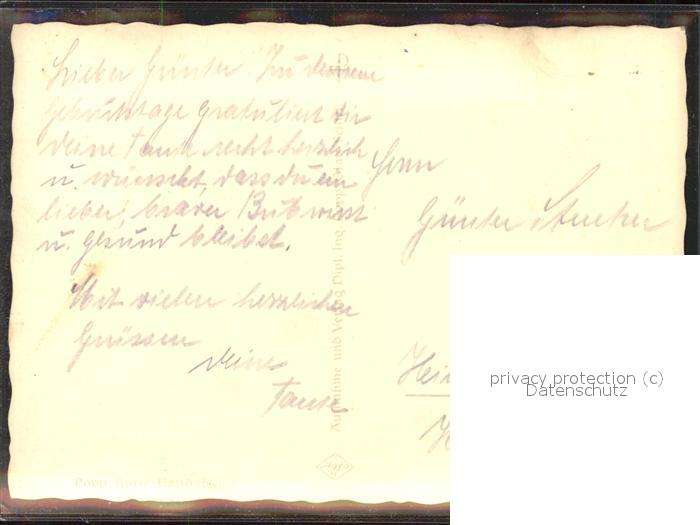 Lieber Günter! Zu deinem
Geburtstage gratuliert dir
deine Tante recht herzlich
u. wünscht, dass du ein
lieber, braver Bub wirst
u. gesund bleibst.
Mit vielen herzlichen
Grüssen
deine
Tante
Herrn
Günter
privacy protection (c)
Datenschutz
Aufnahme und Verlag Dipl. Ing.